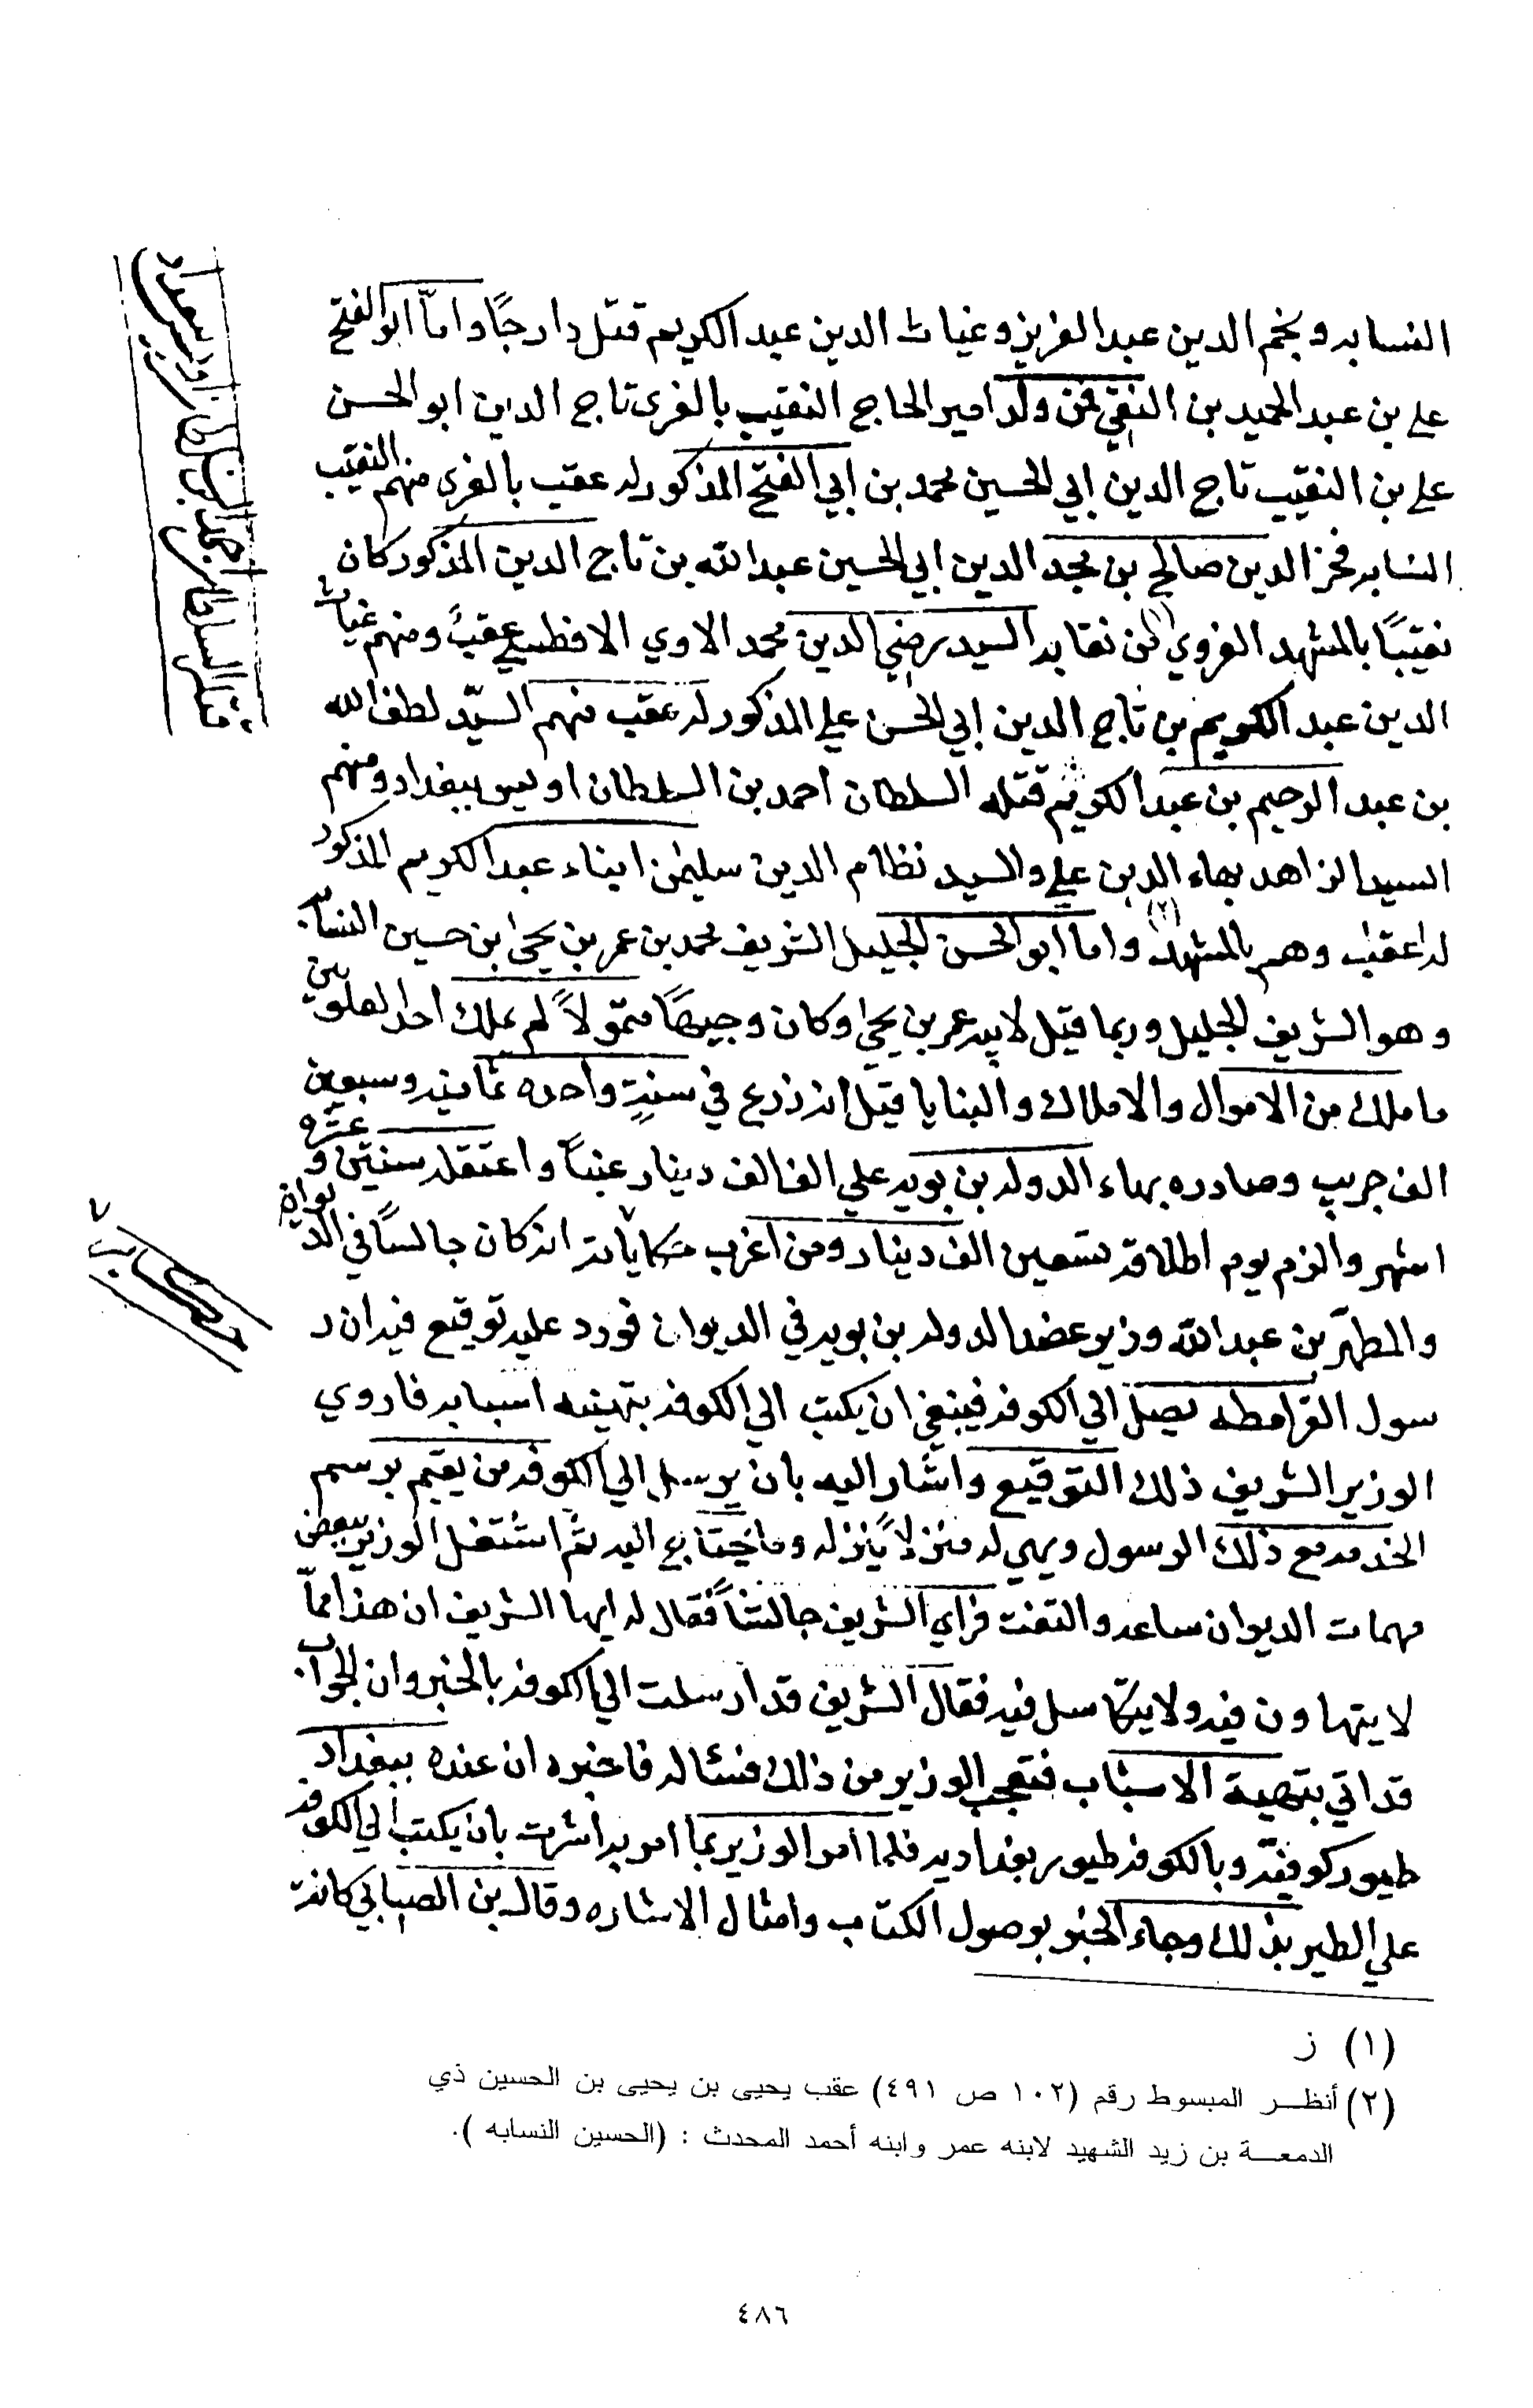 النسابه ونجم الدين عبد العزيز وغياث الدين عبد الكريم قتل دارجًا واما ابو الفتح
علي بن عبد الحميد بن التقي فمن ولده امير الحاج النقيب بالغرى تاج الدين ابو الحسن
علي بن النقيب تاج الدين ابي الحسين محمد بن ابي الفتح المذكور له عقب بالغرى منهم النقيب
النسابه فخر الدين صالح بن مجد الدين ابي الحسين عبد الله بن تاج الدين المذكور كان
نقيبًا بالمشهد الغروي (١) من نقابه السيد رضي الدين محمد الاوي الافطسي عقب ومنهم غياث
الدين عبد الكريم بن تاج الدين ابي الحسن علي المذكور له عقب منهم السيّد لطف الله
بن عبد الرحيم بن عبد الكريم قتله السلطان احمد بن السلطان اويس ببغداد ومنهم
السيد الزاهد بهاء الدين علي والسيد نظام الدين سليمٰن ابناء عبد الكريم المذكور
له اعقاب وهم بالمشهد (٢) واما ابو الحسن الجليل الشريف محمد بن عمر بن يحيىٰ بن حسين النسابه
وهو الشريف الجليل وربما قيل لابيه عمر بن يحيىٰ وكان وجيهًا متمولاً لم يملك احد العلويين
ما ملك من الاموال والاملاك والبنايا قيل انه زرع في سنةٍ واحده ثمانيه وسبعين
الف جريب وصادره بهاء الدوله بن بويه علي الف الف دينار عنبًا واعتقله سنتين وعشره
اشهر والزم يوم اطلاقه تسعين الف دينار ومن اغرب حكاياته انه كان جالسًا في الديوان
والمطهّر بن عبد الله وزير عضد الدوله بن بويه في الديوان فورد عليه توقيع فيه ان ر
سول القرامطه يصل الي الكوفه فينبغي ان يكتب الي الكوفه بتهيئه اسبابه فاروي
الوزير الشريف ذلك التوقيع واشار اليه بان يرسل الي الكوفه من يقيم برسم
الخدمه مع ذلك الرسول ويهي له منزلاً ينزله وما يحتاج اليه ثم اشتغل الوزير ببعض
مهمات الديوان ساعه والتفت فراي الشريف جالسًا فقال له ايها الشريف ان هذا مما
لا يتهاون فيه ولا يتكاسل فيه فقال الشريف قد ارسلت الي الكوفه بالخبر وان الجواب
قد اتي بتهية الاسباب فتعجب الوزير من ذلك فسئاله فاخبره ان عنده ببغداد
طيور كوفيّه وبالكوفه طيور بغداديه فلما امر الوزير بما امر به اشرت بان يكتب الي الكوفه
علي الطير بذلك وجاء الخبر بوصول الكتاب وامثال الاشاره وقال بن الصابي كانت
قتله السلطان احمد بن السلطان اويس ببغداد
حكايت
(١) ز
(٢) أنظـر المبسوط رقم (١٠٢ ص ٤٩١) عقب يحيى بن يحيى بن الحسين ذي
الدمعـة بن زيد الشهيد لابنه عمر وابنه أحمد المحدث : (الحسين النسابه ).
٤٨٦